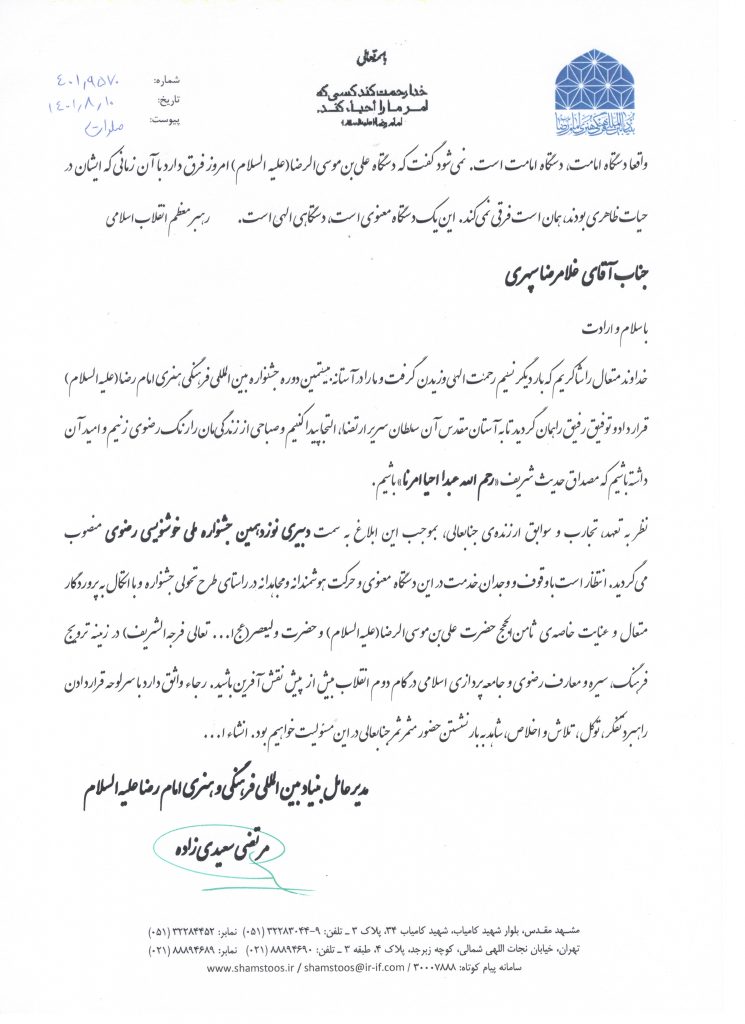 باسمه تعالی
خدا رحمت کند کسی که
امر ما را احیاء کند.
امام رضا (علیه السلام)
بنیاد بین المللی فرهنگی هنری امام رضا
شماره: ۴۰۱٫۹۵۷۰
تاریخ: ۱۴۰۱٫۸٫۱۰
پیوست:
واقعا دستگاه امامت، دستگاه امامت است. نمی شود گفت که دستگاه علی بن موسی الرضا(علیه السلام) امروز فرق دارد با آن زمانی که ایشان در
حیات ظاهری بودند، همان است فرقی نمی کند. این یک دستگاه معنوی است، دستگاهی الهی است. رهبر معظم انقلاب اسلامی
جناب آقای غلامرضا سپهری
با سلام و ارادت
خداوند متعال را شاکریم که بار دیگر نسیم رحمت الهی وزیدن گرفت و ما را در آستانه بیستمین دوره جشنواره بین المللی فرهنگی هنری امام رضا(علیه السلام)
قرار داد و توفیق رفیق راهمان گردید تا به آستان مقدس آن سلطان سریر ارتضا، التجا پیدا کنیم و صباحی از زندگی مان را رنگ رضوی زنیم و امید آن
داشته باشیم که مصداق حدیث شریف «رحم الله عبدا احیا امرنا» باشیم.
نظر به تعهد، تجارب و سوابق ارزنده ی جنابعالی، بموجب این ابلاغ به سمت دبیری نوزدهمین جشنواره ملی خوشنویسی رضوی منصوب
می گردید. انتظار است با وقوف و وجدان خدمت در این دستگاه معنوی و حرکت هوشمندانه و مجاهدانه در راستای طرح تحولی جشنواره و با اتکال به پروردگار
متعال و عنایت خاصه ی ثامن الحجج حضرت علی بن موسی الرضا(علیه السلام) و حضرت ولیعصر(عج ا... تعالی فرجه الشریف) در زمینه ترویج
فرهنگ، سیره و معارف رضوی و جامعه پردازی اسلامی در گام دوم انقلاب بیش از پیش نقش آفرین باشید. رجاء واثق دارد با سرلوحه قرار دادن
راهبرد تفکر، توکل، تلاش و اخلاص، شاهد به بار نشستن حضور مثمرثمر جنابعالی در این مسئولیت خواهیم بود. انشاء ا...
مدیرعامل بنیاد بین المللی فرهنگی و هنری امام رضا علیه السلام
مرتضی سعیدی زاده
مشهد مقدس، بلوار شهید کامیاب، شهید کامیاب ۳۴، پلاک ۳ ـ تلفن: ۹-۳۲۲۸۳۰۴۴ (۰۵۱) نمابر: ۳۲۲۸۴۴۵۲ (۰۵۱)
تهران، خیابان نجات اللهی شمالی، کوچه زبرجد، پلاک ۴، طبقه ۳ ـ تلفن: ۸۸۸۹۴۶۹۰ (۰۲۱) نمابر: ۸۸۸۹۴۶۸۹ (۰۲۱)
سامانه پیام کوتاه: ۳۰۰۰۷۸۸۸ / www.shamstoos.ir / shamstoos@ir-if.com